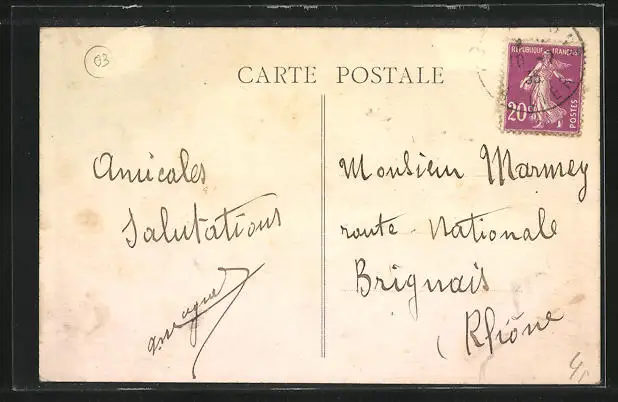 03
CARTE POSTALE
REPUBLIQUE FRANÇAISE
20c
POSTES
Amicales
Salutations
Monsieur Marmey
route Nationale
Brignais
Rhône